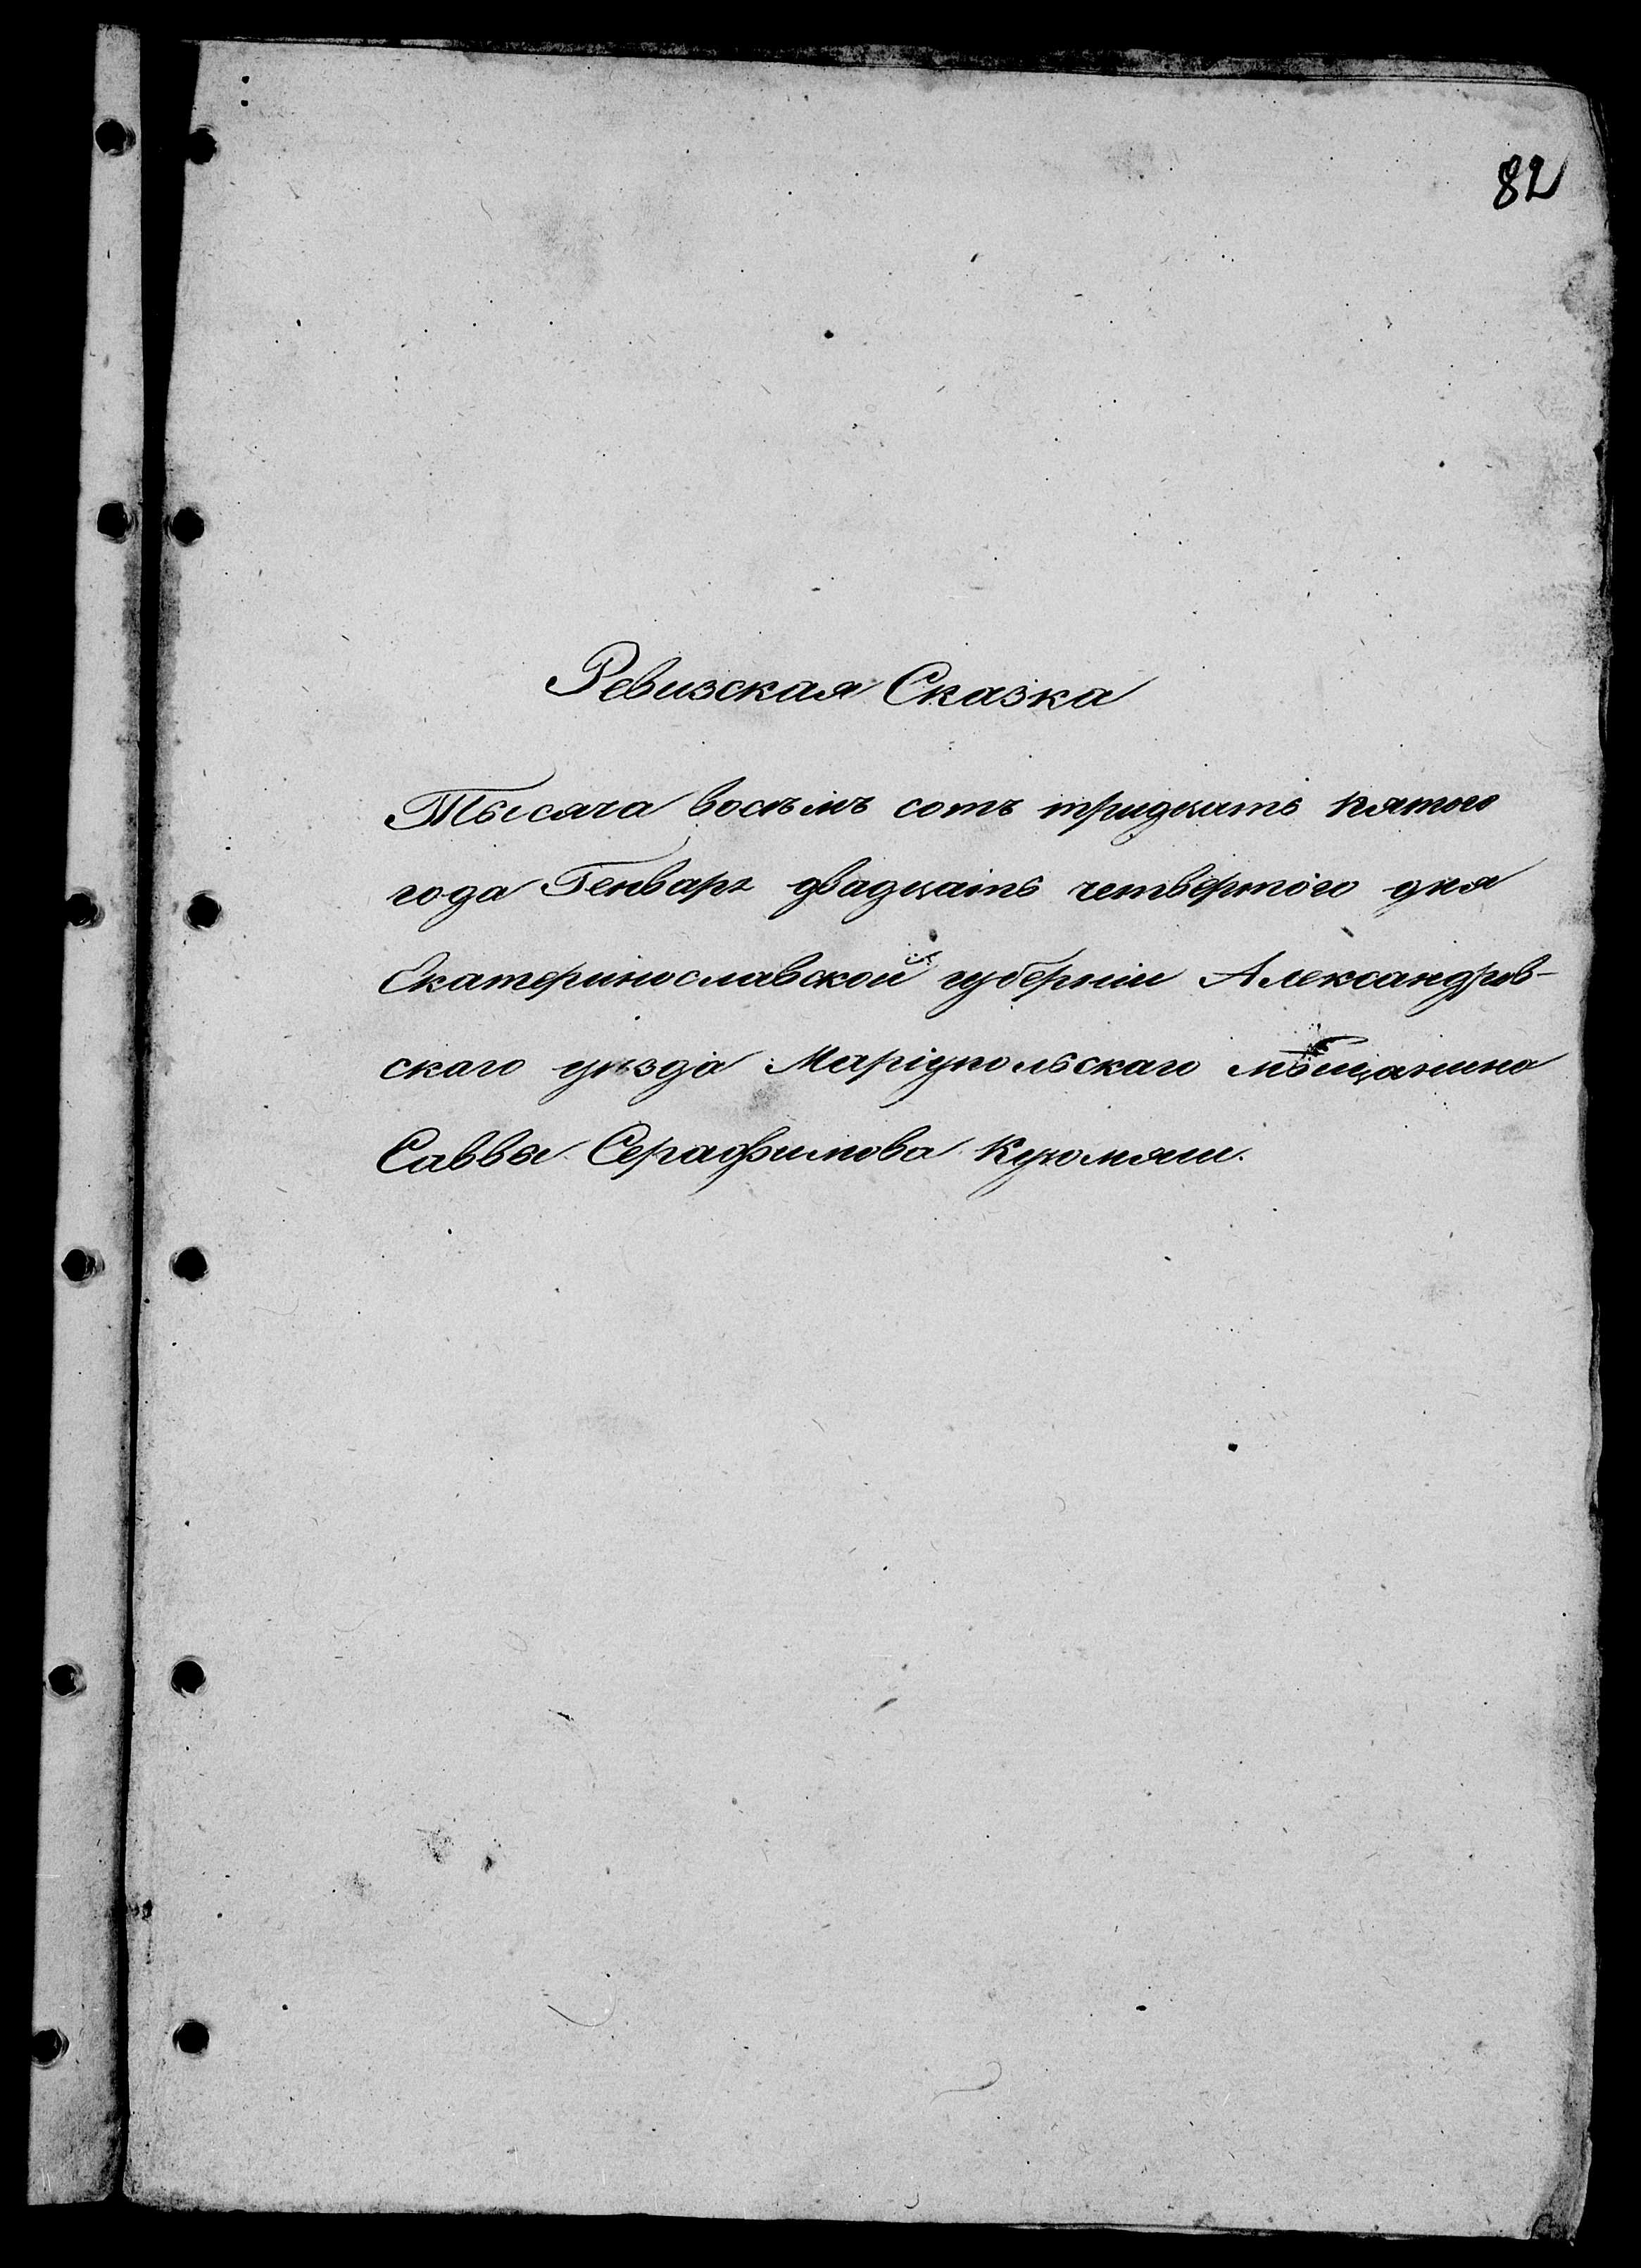 82
Ревизская Сказка
Тысяча восѣмъ сотъ тридцать пятого
года Генваря двадцать четвертого дня
Екатеринославской губерніи Александров-
скаго уѣзда Маріупольскаго мѣщанина
Саввы Серафимова